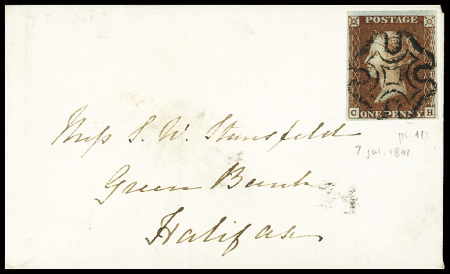 POSTAGE
C ONE PENNY H
Miss S. W. Stansfeld
Green Bank
Halifax
pl. 11
7 Jul. 1841